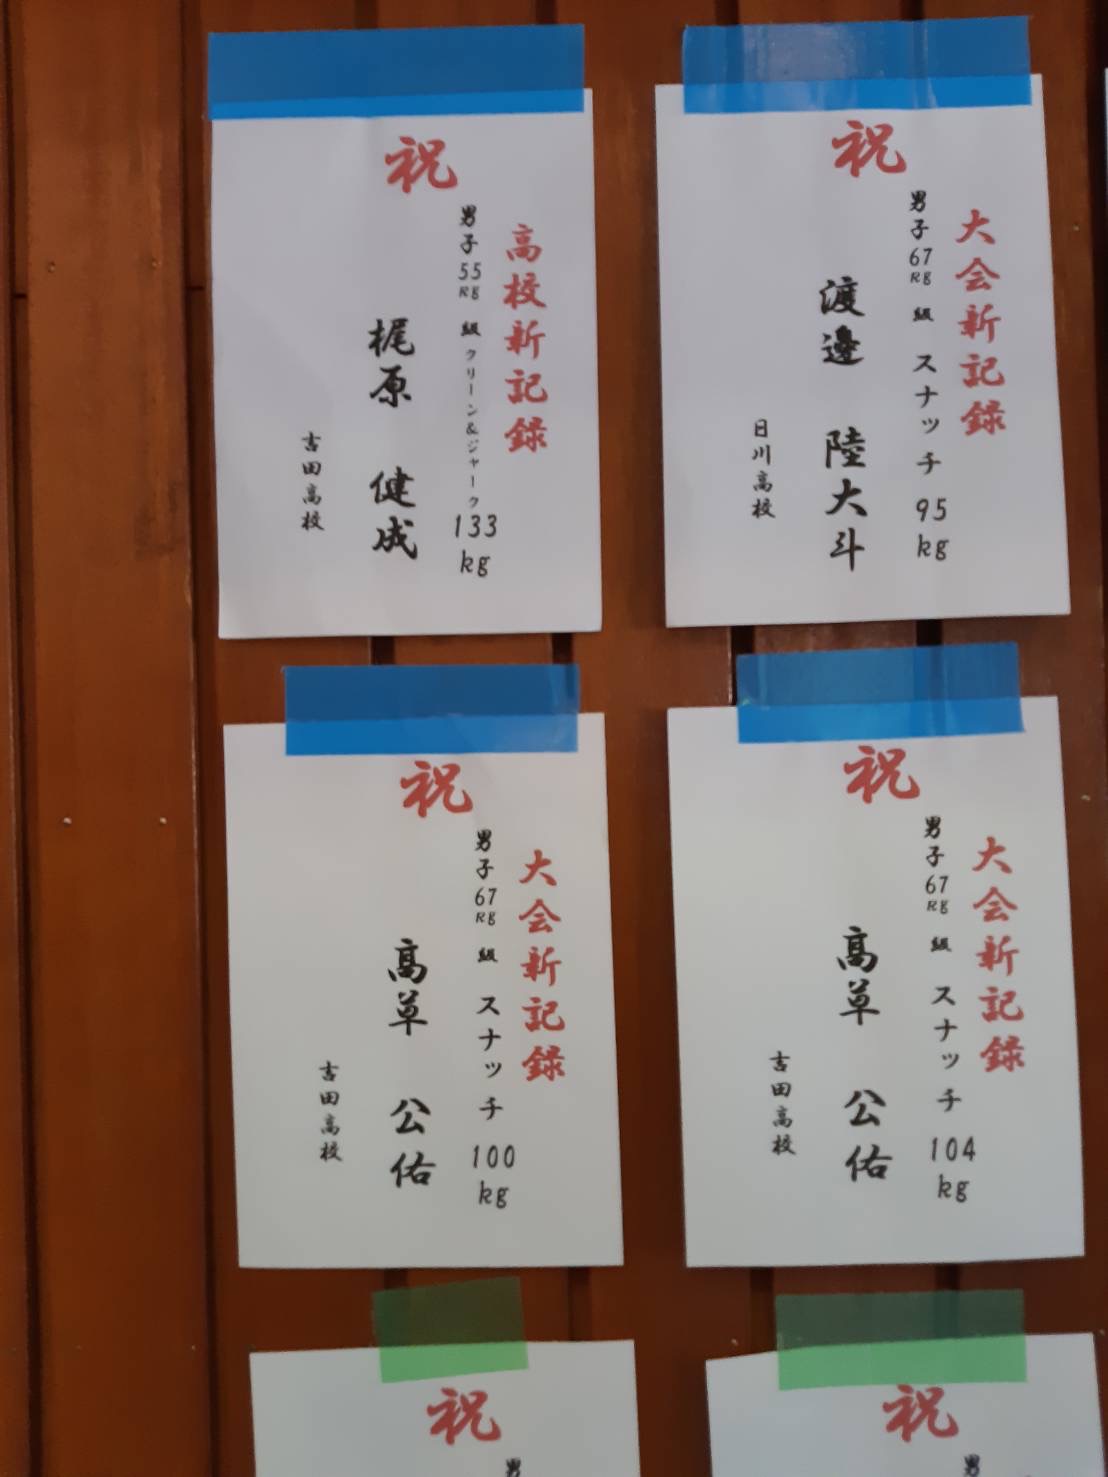 祝
高校新記録
男子55kg級 クリーン&ジャーク 133kg
梶原 健成
吉田高校
祝
大会新記録
男子67kg級 スナッチ 95kg
渡邊 陸大斗
日川高校
祝
大会新記録
男子67kg級 スナッチ 100kg
髙草 公佑
吉田高校
祝
大会新記録
男子67kg級 スナッチ 104kg
髙草 公佑
吉田高校
祝
男
祝
男